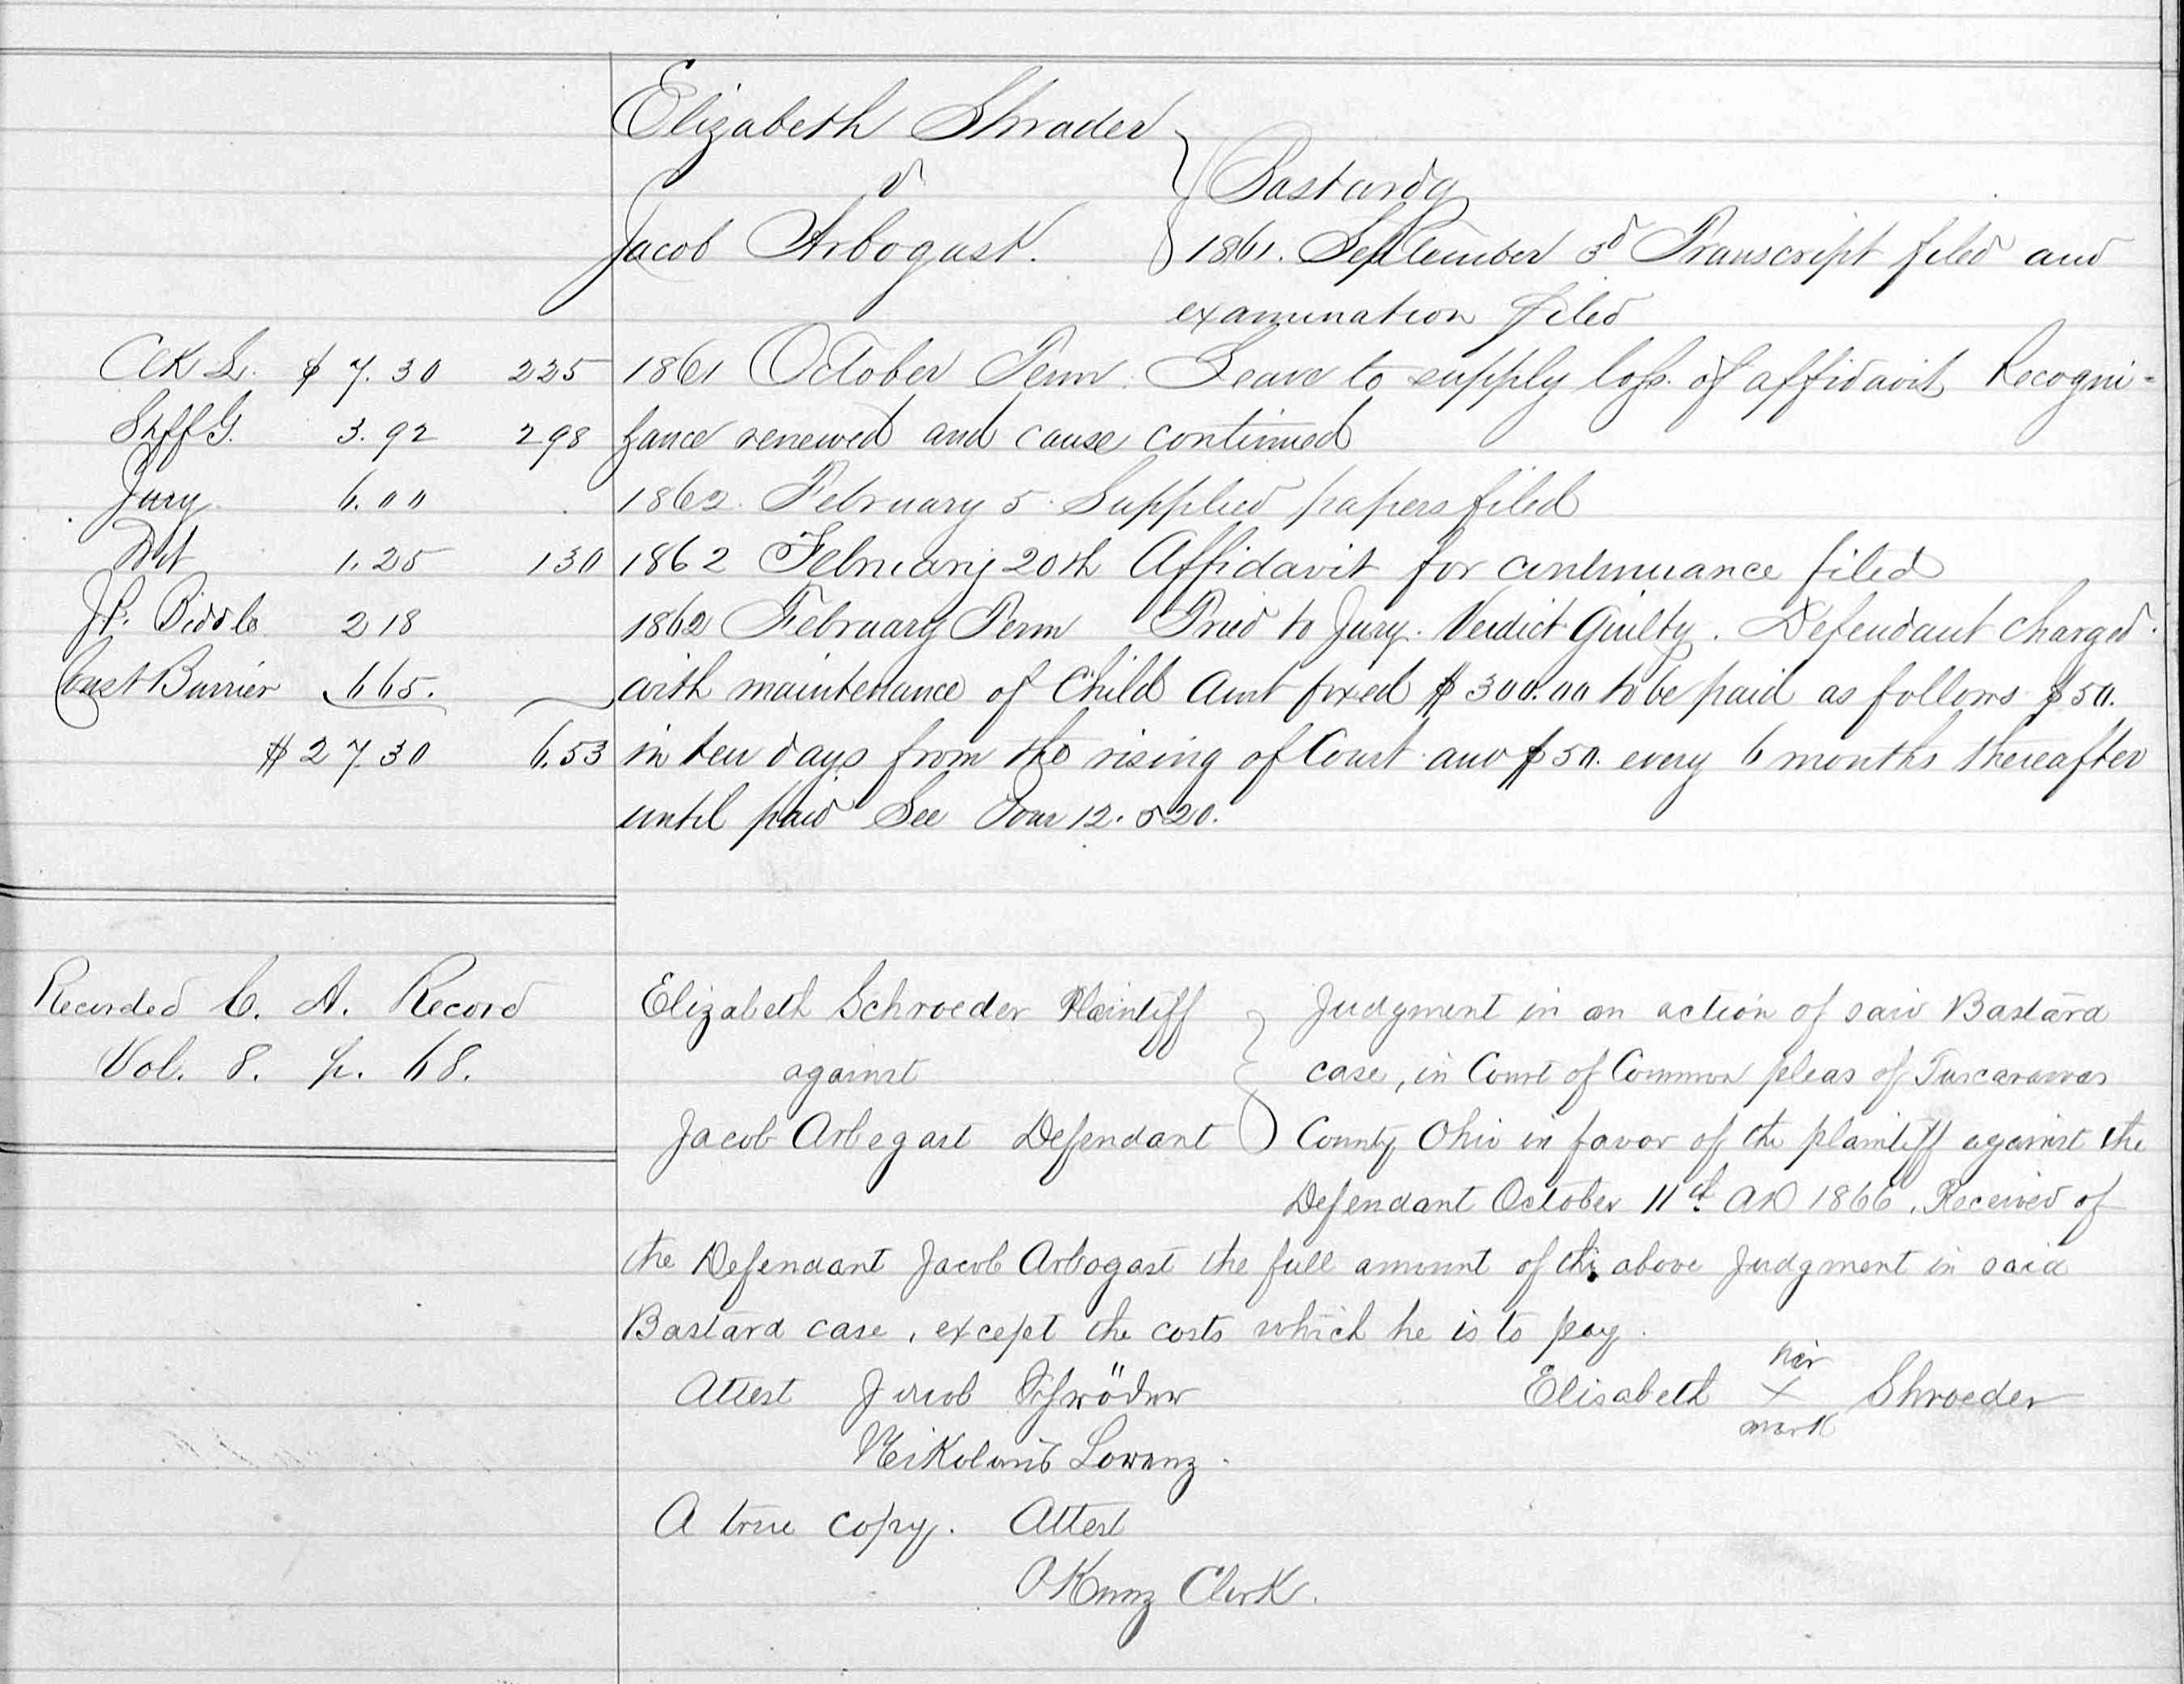 Elizabeth Shrader
v
Jacob Arbogast.
Bastardy
1861. September 3d Transcript filed and
examination filed
Clk L. $ 7.30 225 1861 October Term. Leave to supply loss. of affidavit Recogni=
Shff G. 3.92 298 zance renewed and cause continued
Jury 6.00 1862. February 5. Supplied papers filed
1.25 130 1862 February 20th Affidavit for continuance filed
J.P. Biddle 2 18 1862 February Term Tried to Jury. Verdict Guilty. Defendant charged.
Const Burrier 6 65. with maintenance of Child Amt fixed $ 300.00 to be paid as follows $50.
$ 27.30 6.53 in ten days from the rising of Court and $50. every 6 months thereafter
until paid See Jour 12. 520.
Recorded C. A. Record
Vol. 8. p. 68.
Elizabeth Schroeder Plaintiff
against
Jacob Arbegast Defendant
Judgment in an action of said Bastard
case, in Court of Common pleas of Tuscarawas
County Ohio in favor of the plaintiff against the
Defendant October 11th AD 1866. Received of
the Defendant Jacob Arbogast the full amount of the above Judgment in said
Bastard case, except the costs which he is to pay.
Attest Jacob Schröder
Nikolaus Lorenz.
Elisabeth her x mark Shroeder
A true copy. Attest
O Kunz Clerk.